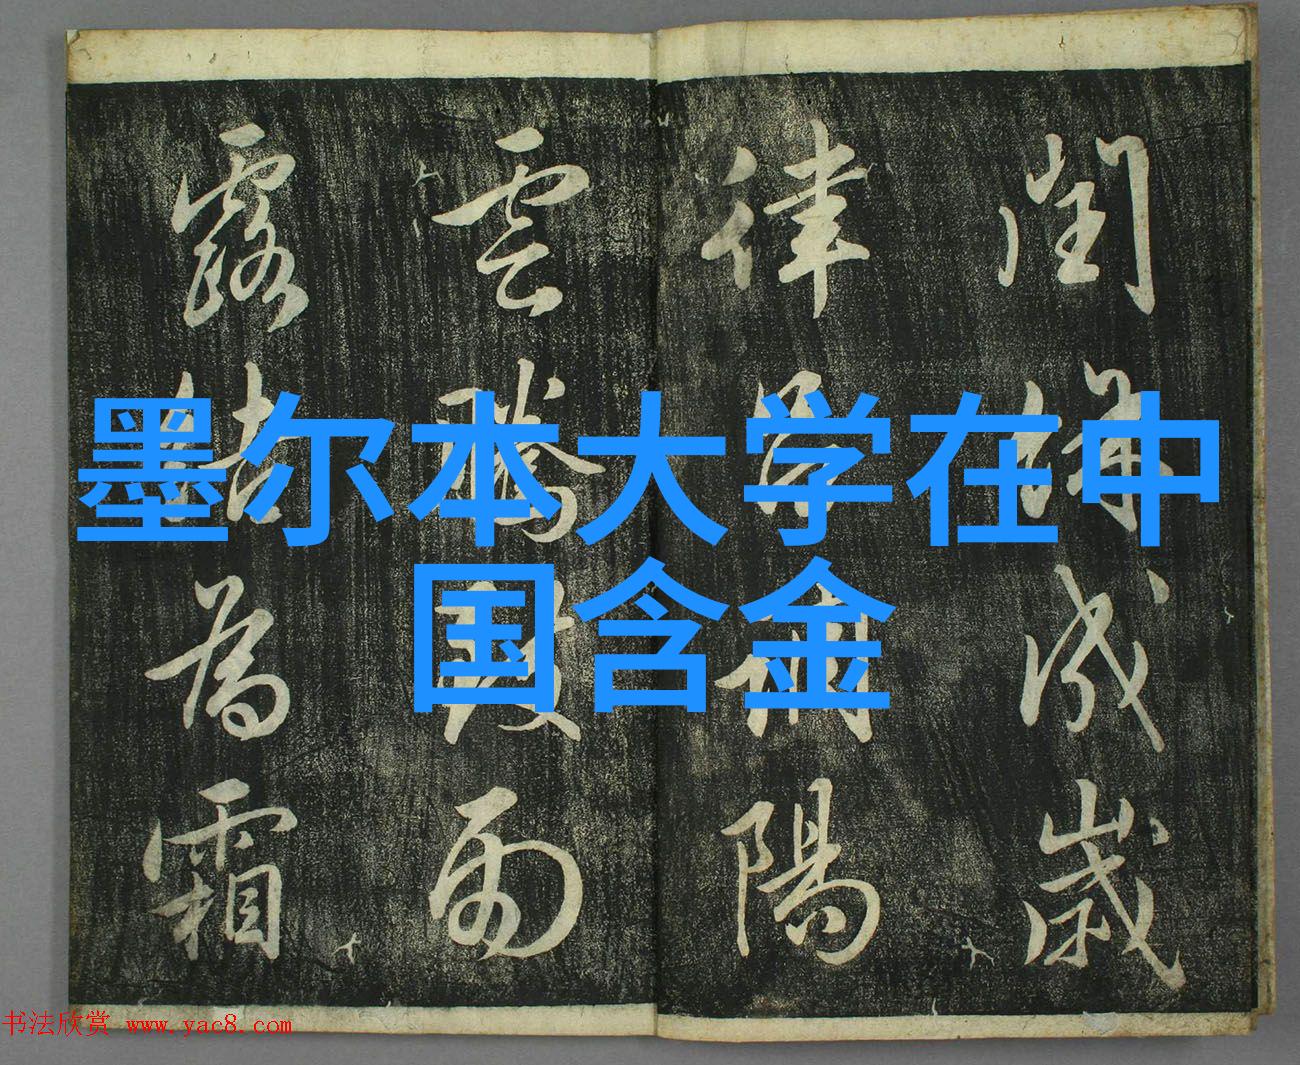 閏餘成歲
律調陽
雲騰致雨
露結為霜
墨尔本大学在中
国含金
书法欣赏 www.yac8.com